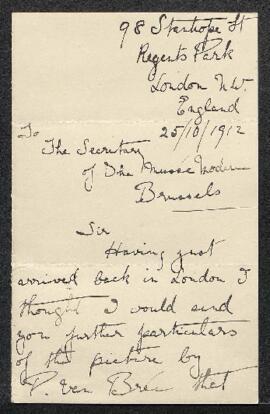 98 Stanhope St
Regents Park
London N.W.
England
25/10/1912
To
The Secretary
of The Musée Modern
Brussels
Sir
Having just
arrived back in London I
thought I would send
you further particulars
of the picture by
P. van Bree that